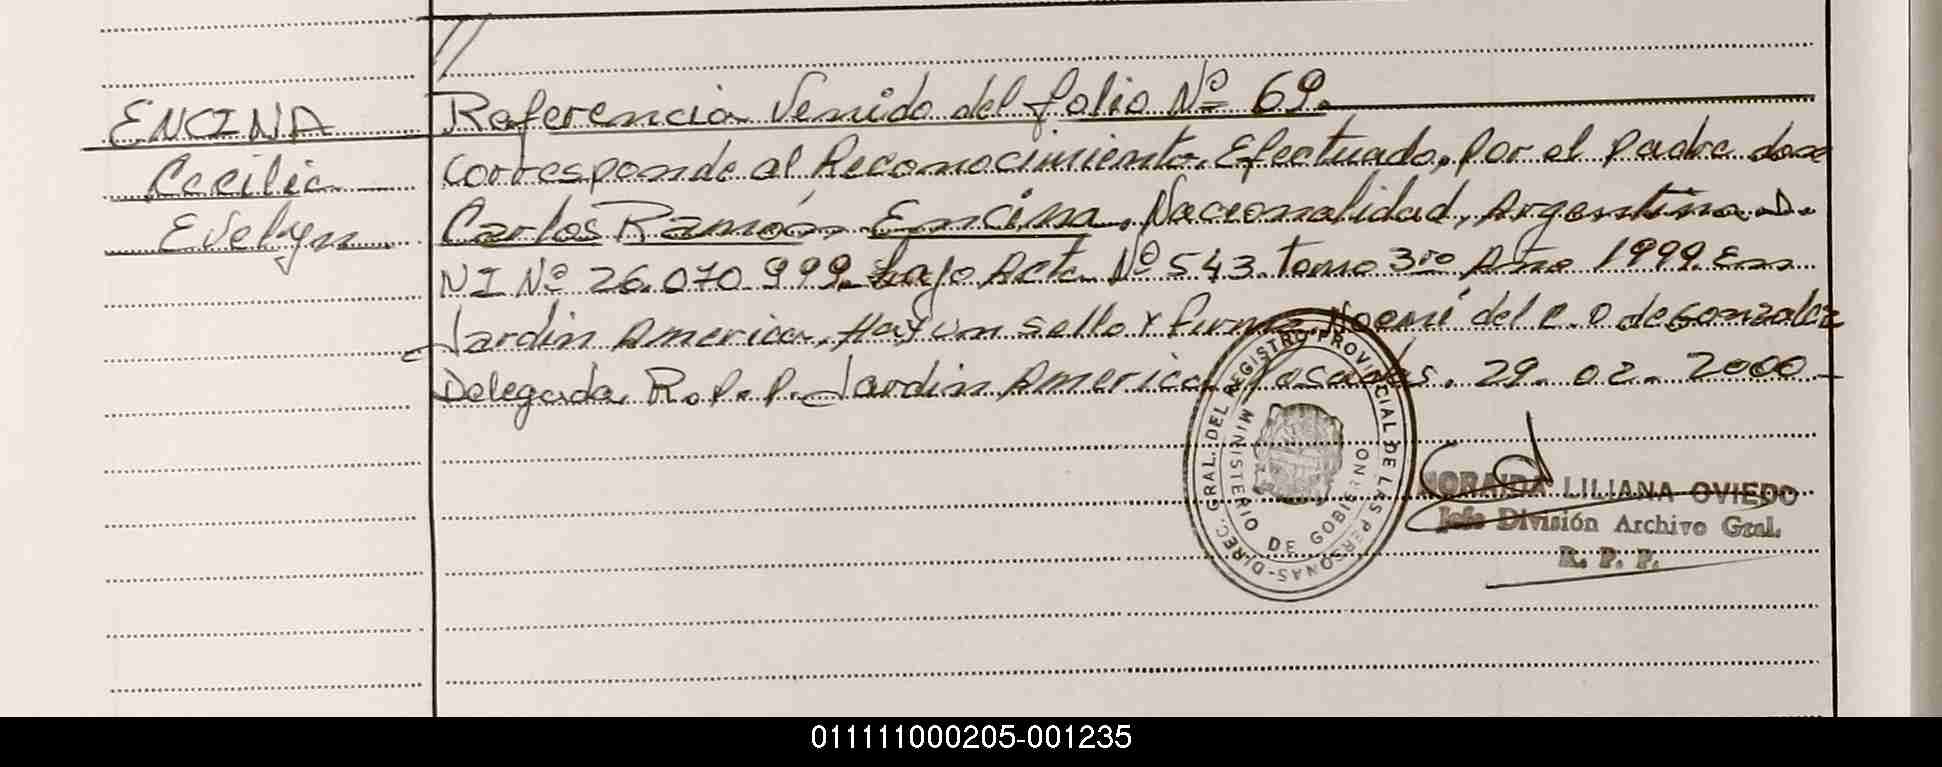 ENCINA
Cecilia
Evelyn.
Referencia Venido del folio Nº 69.
Corresponde al Reconocimiento. Efectuado, por el padre don
Carlos Ramón, Encina. Nacionalidad, Argentina. D.
NI Nº 26.070.999. bajo Acta Nº 543. tomo 3ro Año 1999. En
Jardin America. Hay un sello y firma. Noemi del C. O de Gonzalez
Delegada R.P.P. Jardin America. Posadas. 29. 02. 2000
DIREC. GRAL. DEL REGISTRO PROVINCIAL DE LAS PERSONAS
MINISTERIO DE GOBIERNO
LILIANA OVIEDO
Jefe División Archivo Gral.
R. P. P.
011111000205-001235